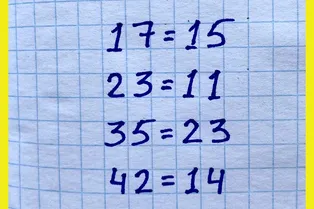 17=15
23=11
35=23
42=14